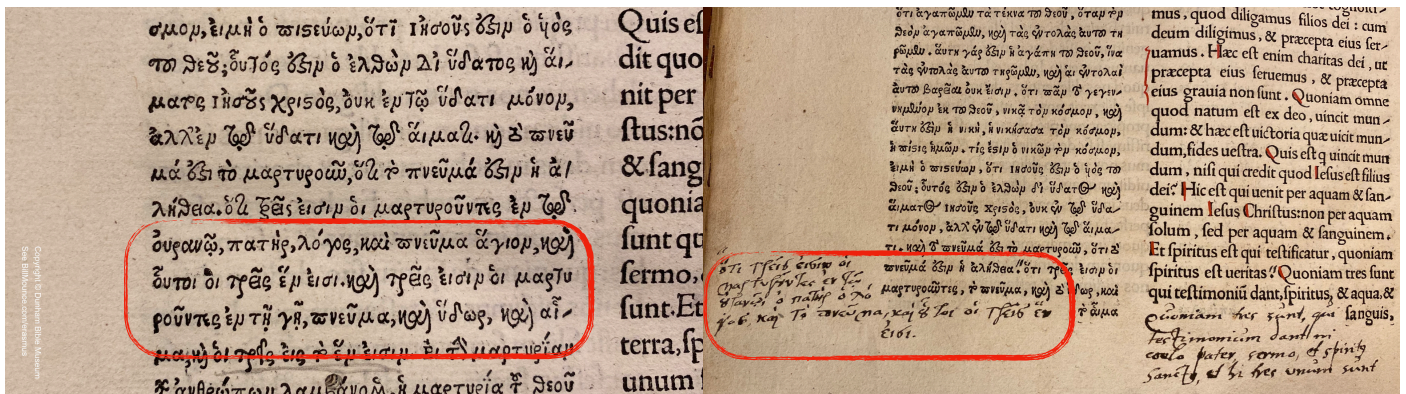 σμον, εἰ μὴ ὁ πιστεύων, ὅτι Ἰησοῦς ἐστιν ὁ ὑιὸς
τοῦ θεοῦ; οὗτός ἐστιν ὁ ἐλθὼν δι ὕδατος καὶ αἵ-
ματος Ἰησοῦς χριστὸς, ὀυκ ἐν τῷ ὕδατι μόνον,
ἀλλ' ἐν τῷ ὕδατι καὶ τῷ αἵματι. καὶ τὸ πνεῦ
μά ἐστι τὸ μαρτυροῦν, ὅτι τὸ πνεῦμά ἐστιν ἡ ἀ/
λήθεια. ὅτι τρεῖς εἰσιν ὁι μαρτυροῦντες ἐν τῷ
ὀυρανῷ, πατὴρ, λόγος, καὶ πνεῦμα ἅγιον, καὶ
ὅυτοι ὁι τρεῖς ἕν εἰσι. καὶ τρεῖς εἰσιν ὁι μαρτυ
ροῦντες ἐν τῇ γῇ, πνεῦμα, καὶ ὕδωρ, καὶ αἷ-
μα, καὶ ὁι τρεῖς εἰς τὸ ἕν εἰσιν. εἰ τὴν μαρτυρίαν
τῶν ἀνθρώπων λαμβάνομεν, ἡ μαρτυρία τοῦ θεοῦ
Quis es
dit quo
nit per
stus:nõ
& sang
quonia
sunt qu
sermo,
sunt.Et
terra,sp
unum
Copyright © Dunham Bible Museum
See Biblouce.com/erasmus
ὅτι ἀγαπῶμεν τὰ τέκνα τοῦ θεοῦ, ὅταν τὸν
θεὸν ἀγαπῶμεν, καὶ τὰς ἐντολὰς αὐτοῦ τη
ρῶμεν. ἅυτη γάρ ἐστιν ἡ ἀγάπη τοῦ θεοῦ, ἵνα
τὰς ἐντολὰς αὐτοῦ τηρῶμεν, καὶ αἱ ἐντολαὶ
αὐτοῦ βαρεῖαι ὀυκ εἰσιν. ὅτι πᾶν τὸ γεγεν-
νημένον ἐκ τοῦ θεοῦ, νικᾷ τὸν κόσμον,
ἅυτη ἐστὶν ἡ νίκη, ἡ νικήσασα τὸν κόσμον,
ἡ πίστις ἡμῶν. τίς ἐστιν ὁ νικῶν τὸν κόσμον,
εἰ μὴ ὁ πιστεύων, ὅτι Ἰησοῦς ἐστιν ὁ ὑιὸς τοῦ
θεοῦ; οὗτός ἐστιν ὁ ἐλθὼν δι' ὕδατος καὶ
αἵματος Ἰησοῦς χριστὸς, ὀυκ ἐν τῷ ὕδα-
τι μόνον, ἀλλ' ἐν τῷ ὕδατι καὶ τῷ αἵμα-
τι. καὶ τὸ πνεῦμά ἐστι τὸ μαρτυροῦν, ὅτι τὸ
πνεῦμά ἐστιν ἡ ἀλήθεια. ὅτι τρεῖς εἰσιν ὁι
μαρτυροῦντες, τὸ πνεῦμα, καὶ τὸ ὕδωρ, καὶ
τὸ αἷμα
ὅτι τρεῖς εἰσιν οἱ
μαρτυρῦντες ἐν τῷ
ȣ̓ρανῷ ὁ πατὴρ ὁ λό
γος, καὶ τὸ πνεῦμα, καὶ ȣ̔τοι οἱ τρεῖς ἓν
εἰσι.
mus, quod diligamus filios dei: cum
deum diligimus, & præcepta eius ser-
uamus. Hæc est enim charitas dei, ut
præcepta eius seruemus, & præcepta
eius grauia non sunt. Quoniam omne
quod natum est ex deo, uincit mun-
dum: & hæc est uictoria quæ uicit mun-
dum, fides uestra. Quis est q uincit mun
dum, nisi qui credit quod Iesus est filius
dei? Hic est qui uenit per aquam & san-
guinem Iesus Christus: non per aquam
solum, sed per aquam & sanguinem.
Et spiritus est qui testificatur, quoniam
spiritus est ueritas. Quoniam tres sunt
qui testimoniũ dant, spiritus, & aqua, &
sanguis,
Quoniam tres sunt, qui
testimonium dant in
coelo pater, sermo, et spiritus
sanctus, et hi tres unum sunt